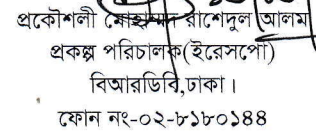 প্রকৌশলী মোহাম্মদ রাশেদুল আলম
প্রকল্প পরিচালক(ইরেসপো)
বিআরডিবি,ঢাকা।
ফোন নং-০২-৮১৮০১৪৪